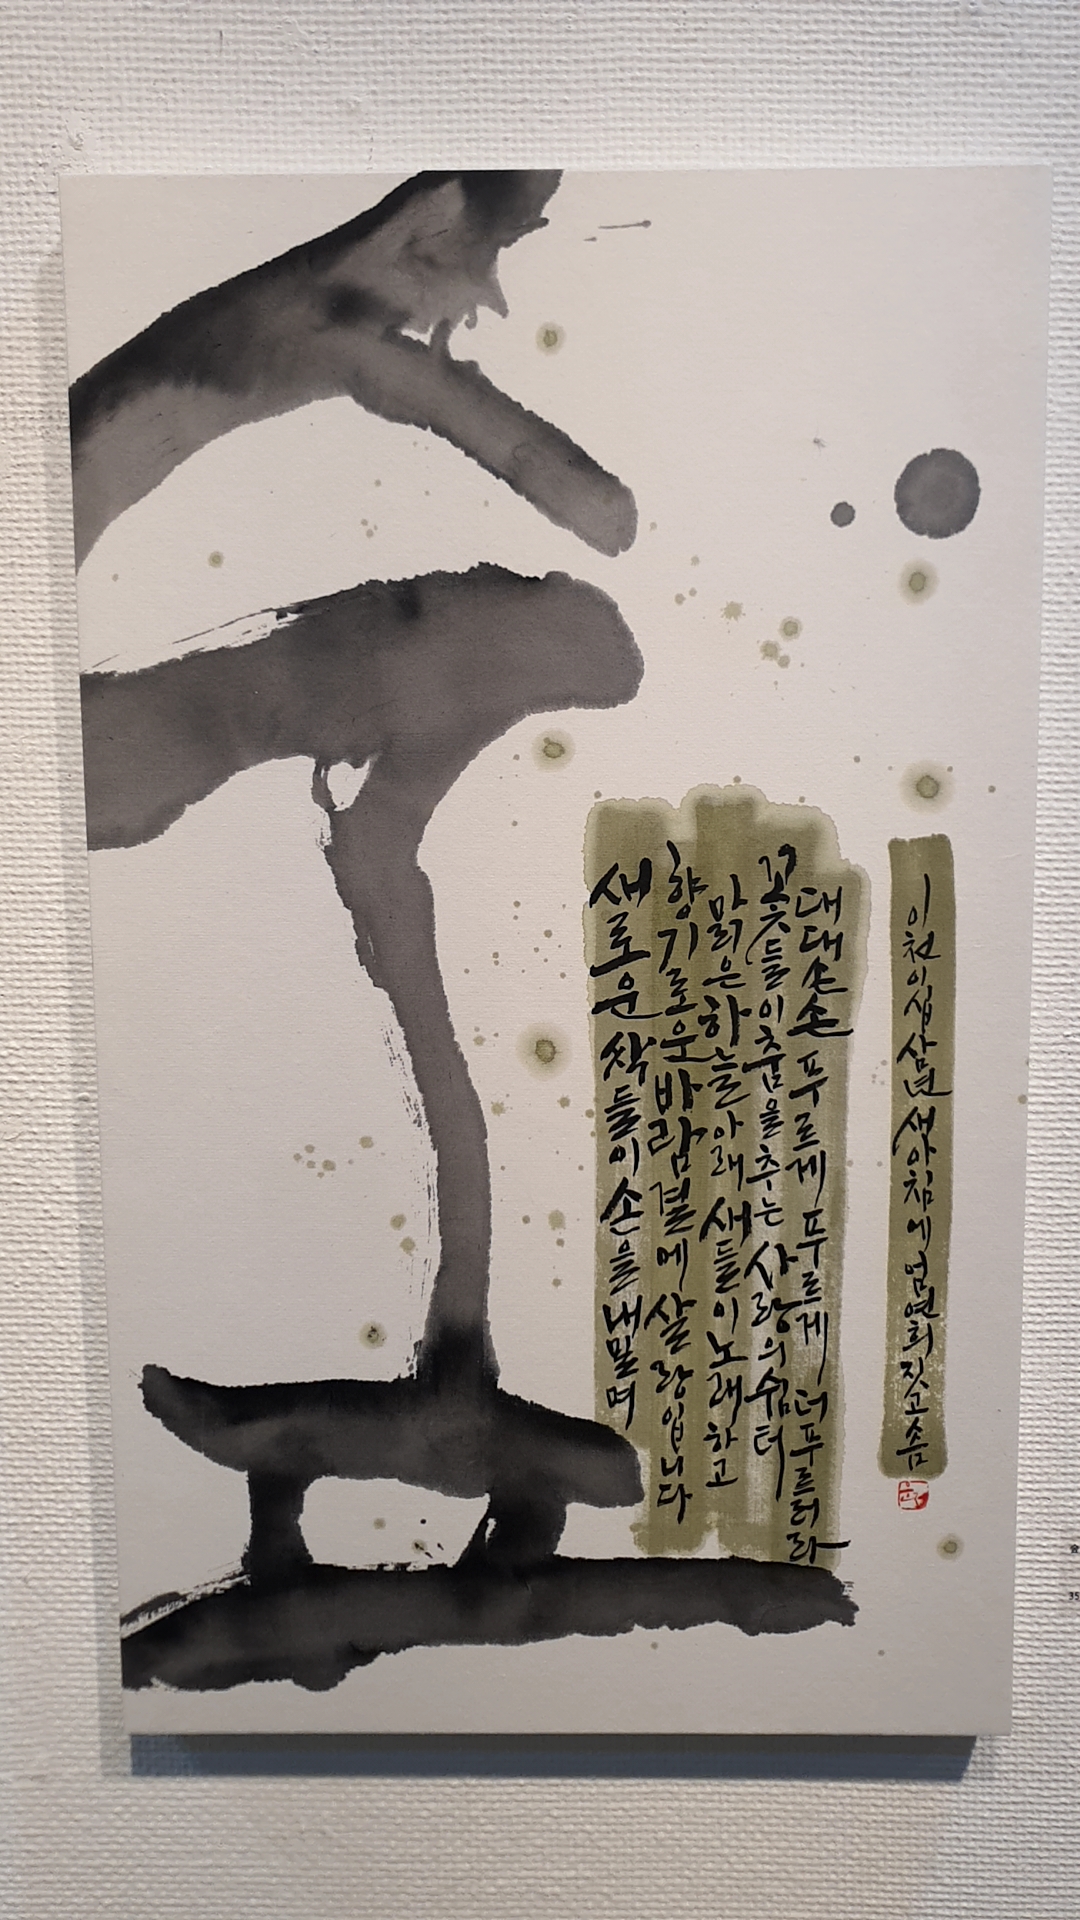 새로운 싹들이 손을 내밀며
향기로운 바람결에 살랑입니다
맑은 하늘 아래 새들이 노래하고
꽃들이 춤을 추는 사랑의 쉼터
대대손손 푸르게 푸르게 더 푸르러라
이천이십삼년 새아침에 엄연희 짓고 씀
35